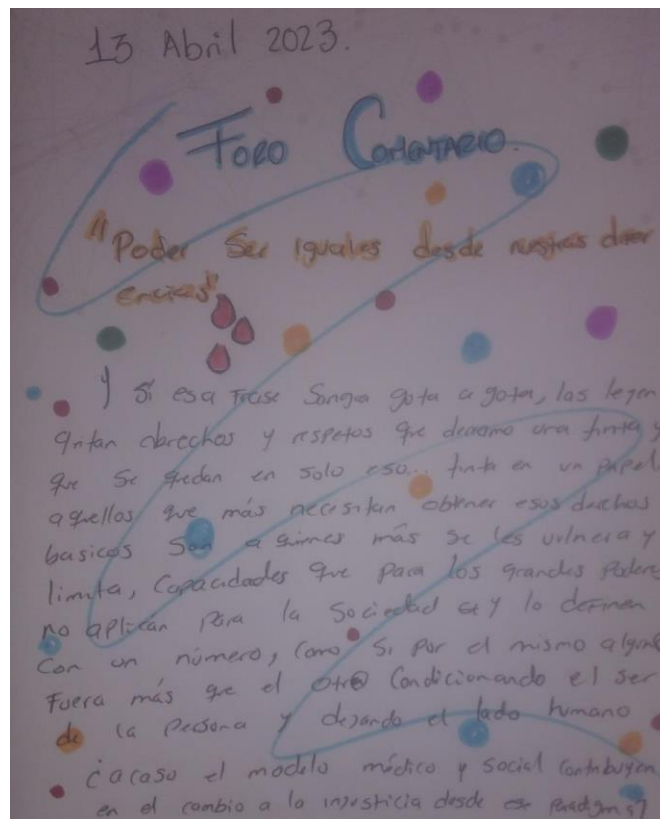 13 Abril 2023.
Foro Comentario.
"Poder Ser iguales desde nuestras difer
encias"
Y Si esa Frase Sangra gota a gota, las leyes
gritan derechos y respetos que derramo una tinta y
que se quedan en solo eso... tinta en un papel
aquellos que más necesitan obtener esos derechos
basicos Son a quienes más se les vulnera y
limita, Capacidades que para los grandes Poderes
no aplican Para la Sociedad y lo definen
Con un número, como Si por el mismo alguno
Fuera más que el otro Condicionando el ser
de la Persona y dejando el lado humano
¿acaso el modelo médico y social Contribuyen
en el cambio a la injusticia desde ese Paradigma?